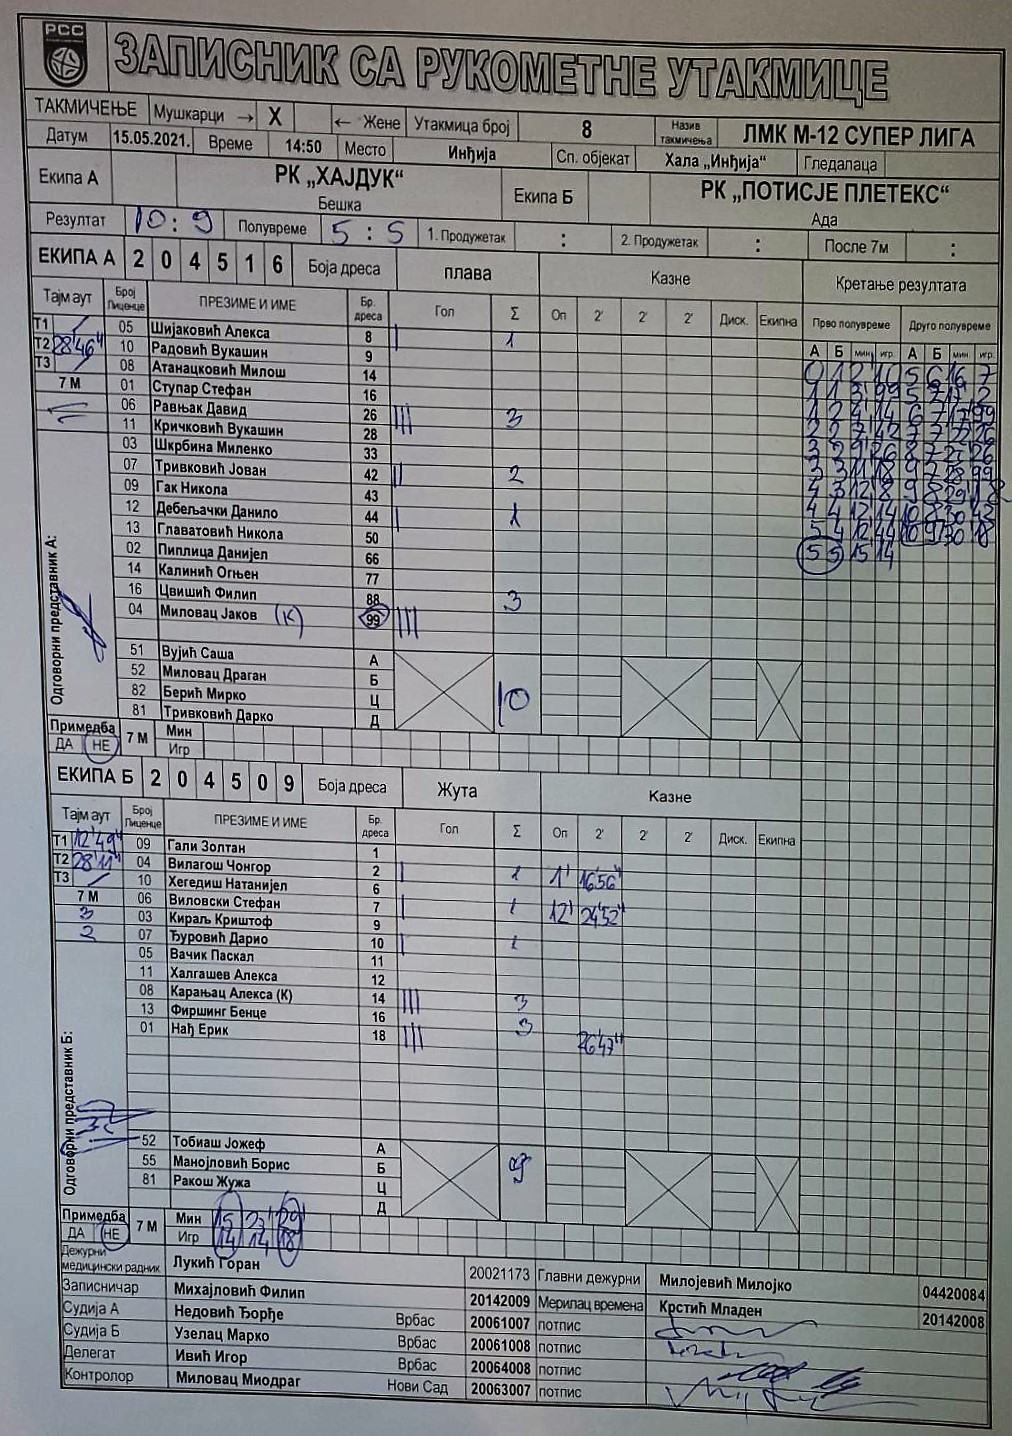 РСС
ЗАПИСНИК СА РУКОМЕТНЕ УТАКМИЦЕ
ТАКМИЧЕЊЕ Мушкарци → X ← Жене Утакмица број 8 Назив такмичења ЛМК М-12 СУПЕР ЛИГА
Датум 15.05.2021. Време 14:50 Место Инђија Сп. објекат Хала „Инђија“ Гледалаца
Екипа А РК „ХАЈДУК“ Бешка Екипа Б РК „ПОТИСЈЕ ПЛЕТЕКС“ Ада
Резултат 10 : 9 Полувреме 5 : 5 1. Продужетак : 2. Продужетак : После 7м :
ЕКИПА А 2 0 4 5 1 6 Боја дреса плава Казне Кретање резултата
Тајм аут Број Лиценце ПРЕЗИМЕ И ИМЕ Бр. дреса Гол Σ Оп 2' 2' 2' Диск. Екипна Прво полувреме Друго полувреме
А Б мин. игр. А Б мин. игр.
Т1 05 Шијаковић Алекса 8 | 1
Т2 28'46" 10 Радовић Вукашин 9
Т3 08 Атанацковић Милош 14
7 М 01 Ступар Стефан 16
06 Равњак Давид 26 ||| 3
11 Кричковић Вукашин 28
03 Шкрбина Миленко 33
07 Тривковић Јован 42 || 2
09 Гак Никола 43
12 Дебељачки Данило 44 | 1
13 Главатовић Никола 50
02 Пиплица Данијел 66
14 Калинић Огњен 77
16 Цвишић Филип 88 3
04 Миловац Јаков (К) 99 |||
0 1 2 10 5 6 16 7
1 1 3 99 5 7 17 2
1 2 4 14 6 7 17 99
2 2 7 42 7 7 22 26
3 2 9 26 8 7 27 26
3 3 11 18 9 7 28 99
4 3 12 8 9 8 29 18
4 4 12 14 10 8 30 42
5 4 12 44 10 9 30 18
5 5 15 14
Одговорни представник А:
51 Вујић Саша А
52 Миловац Драган Б
82 Берић Мирко Ц
81 Тривковић Дарко Д
10
Примедба ДА НЕ 7 М Мин Игр
ЕКИПА Б 2 0 4 5 0 9 Боја дреса Жута Казне
Тајм аут Број Лиценце ПРЕЗИМЕ И ИМЕ Бр. дреса Гол Σ Оп 2' 2' 2' Диск. Екипна
Т1 12'49" 09 Гали Золтан 1
Т2 28'11" 04 Вилагош Чонгор 2 | 1 1' 16'56"
Т3 10 Хегедиш Натанијел 6
7 М 06 Виловски Стефан 7 | 1 12' 24'52"
3 03 Кираљ Криштоф 9
2 07 Ђуровић Дарио 10 | 1
05 Вачик Паскал 11
11 Халгашев Алекса 12
08 Карањац Алекса (К) 14 ||| 3
13 Фиршинг Бенце 16
01 Нађ Ерик 18 ||| 3 26'47"
Одговорни представник Б:
52 Тобиаш Јожеф А
55 Манојловић Борис Б
81 Ракош Жужа Ц
Д
9
Примедба ДА НЕ 7 М Мин 15
Игр 14 14 18
Дежурни медицински радник Лукић Горан 20021173 Главни дежурни Милојевић Милојко 04420084
Записничар Михајловић Филип 20142009 Мерилац времена Крстић Младен 20142008
Судија А Недовић Ђорђе Врбас 20061007 потпис
Судија Б Узелац Марко Врбас 20061008 потпис
Делегат Ивић Игор Врбас 20064008 потпис
Контролор Миловац Миодраг Нови Сад 20063007 потпис